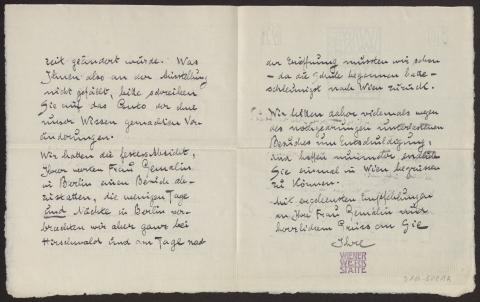 zeit geändert wurde. Was
Ihnen also an der Ausstellung
nicht gefällt, bitte schreiben
Sie auf das Conto der ohne
unser Wissen gemachten Ver-
änderungen.
Wir hatten die feste Absicht,
Ihrer werten Frau Gemalin
in Berlin einen Besuch ab-
zustatten, die wenigen Tage
und Nächte in Berlin ver-
brachten wir aber ganz bei
Hirschwald und am Tage nach
der Eröffnung mussten wir schon
– da die Schule begonnen hatte –
schleunigst nach Wien zurück.
Wir bitten daher vielemals wegen
des notgedrungen unterbliebenen
Besuches um Entschuldigung,
und hoffen nunmehr
Sie einmal in Wien begrüssen
zu können.
Mit ergebensten Empfehlungen
an Ihre Frau Gemalin und
herzlichem Gruss an Sie
Ihre
WIENER
WERK
STÄTTE